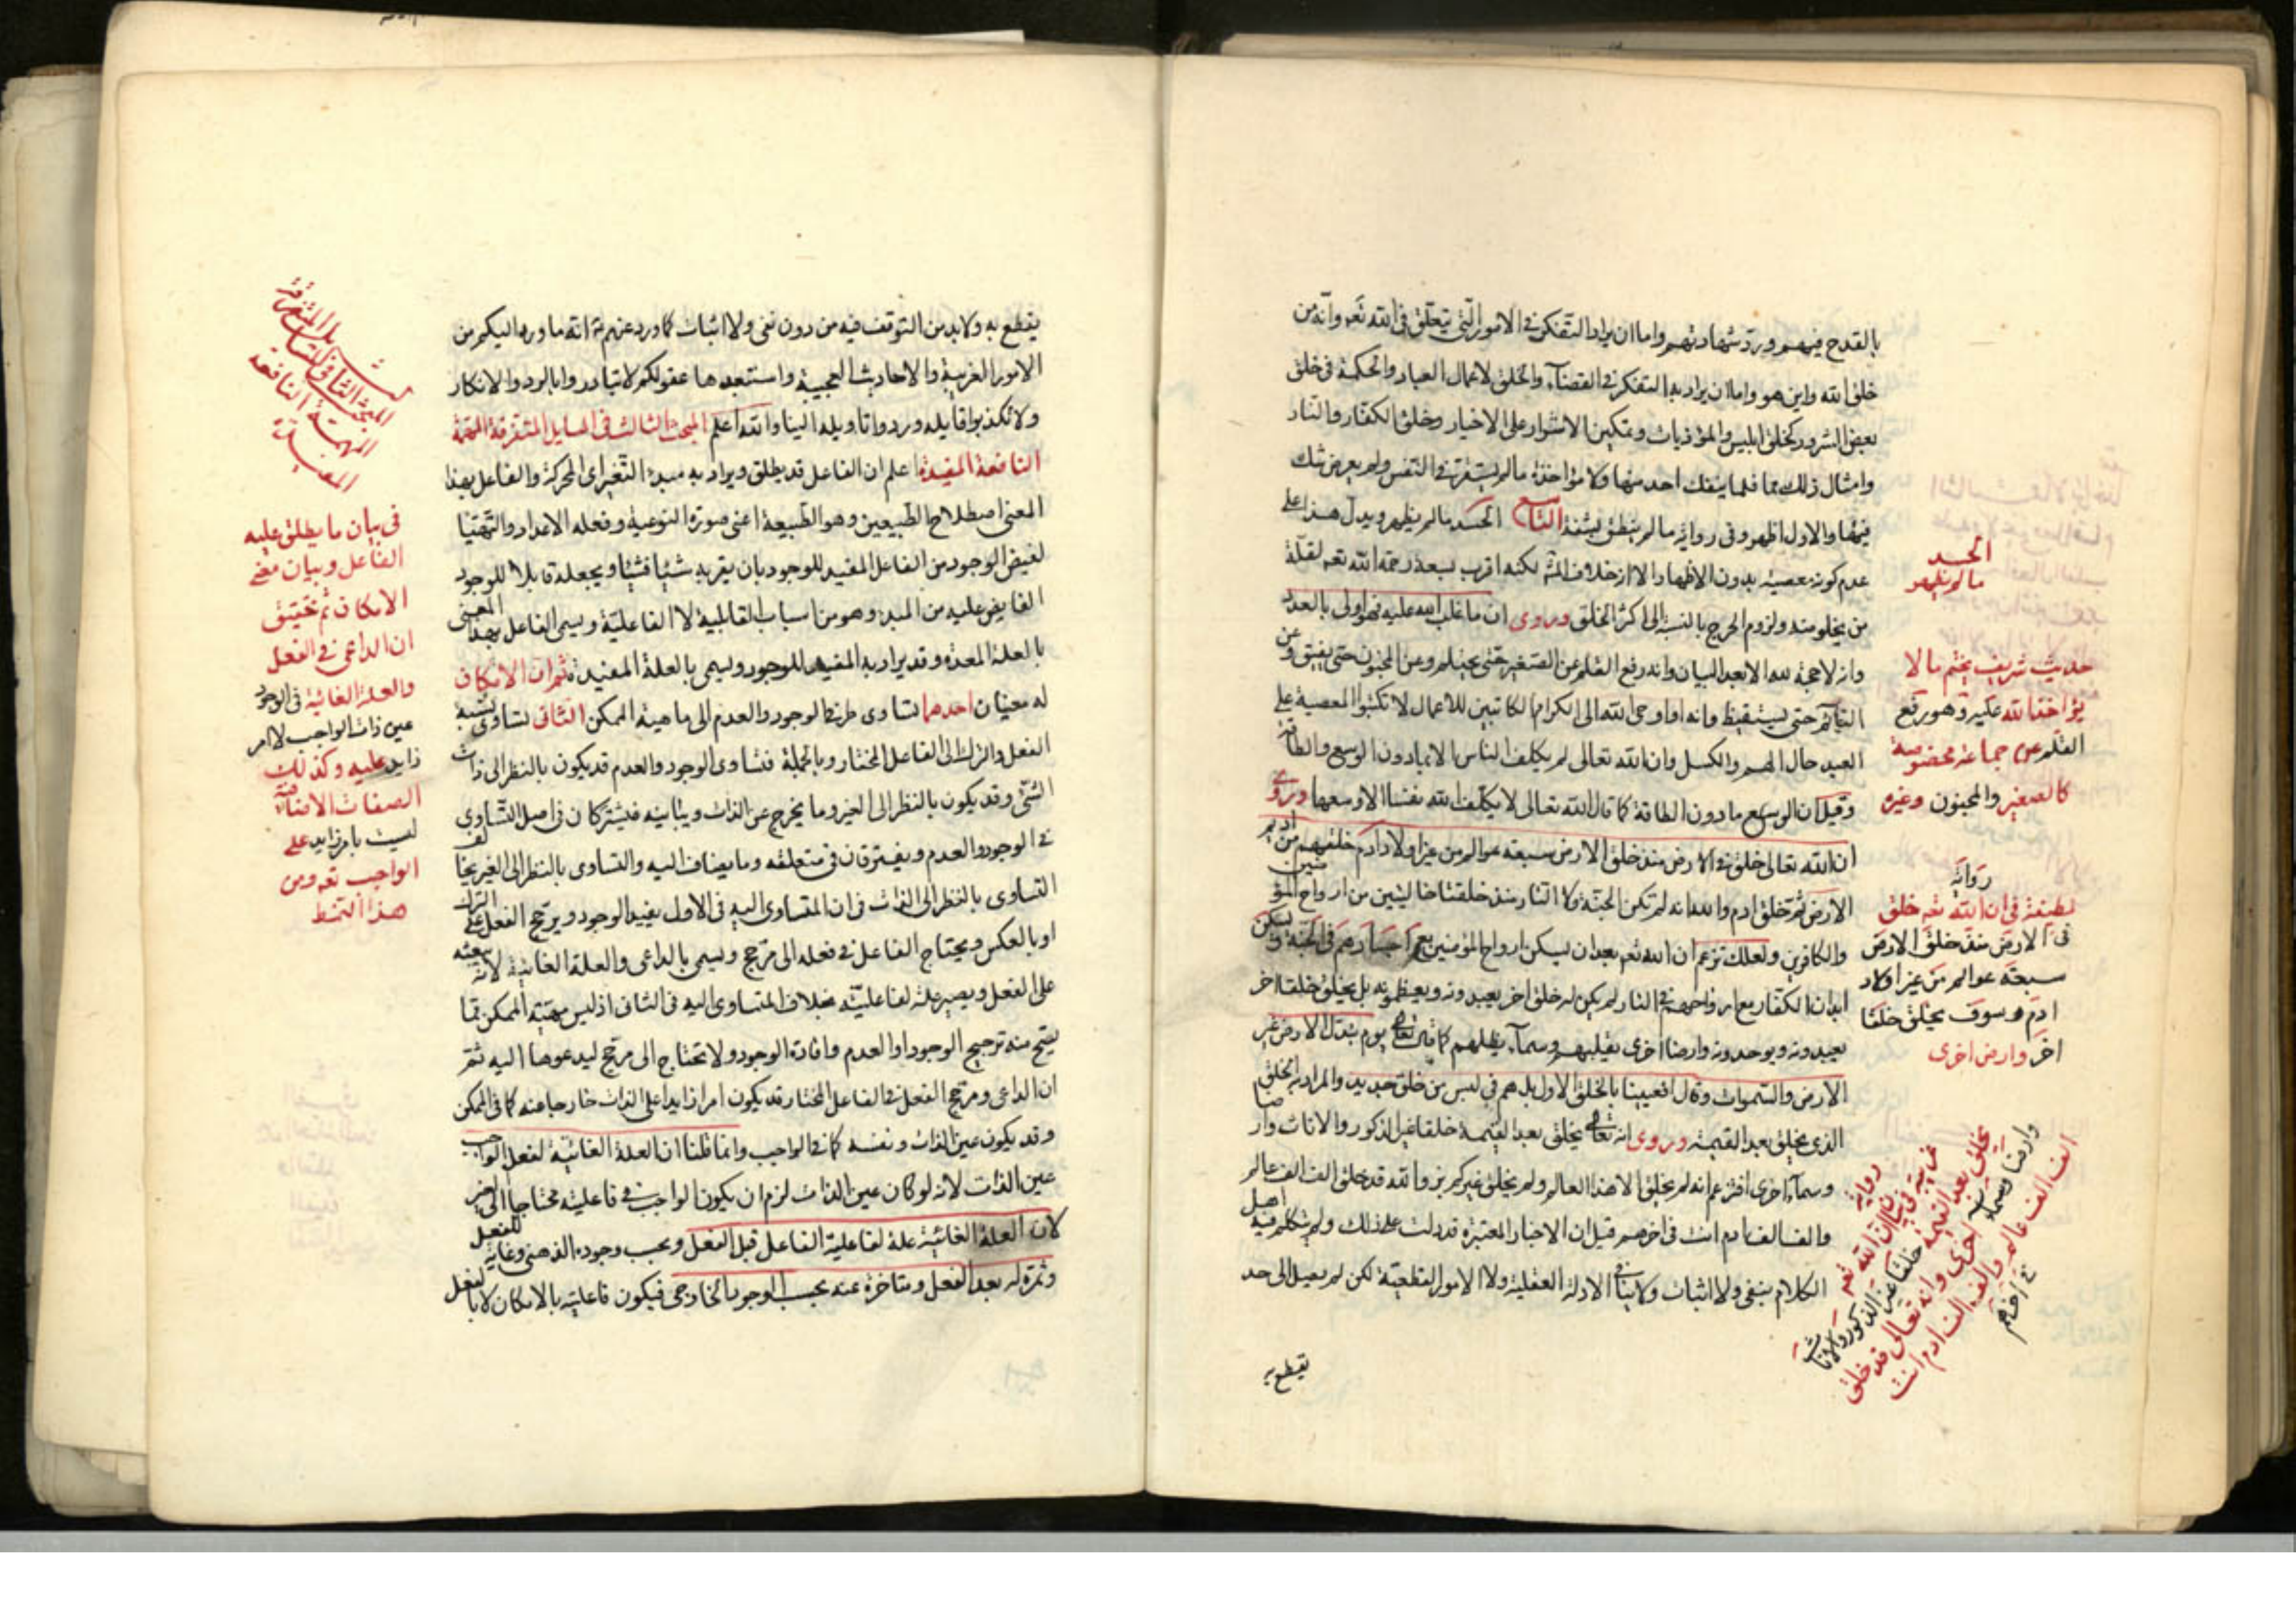 بالقدح فيهم ورد شهادتهم واما ان يراد التفكر في الامور التي يتعلق في الله تعه وانه من
خلق الله واين هو واما ان يراد به التفكر في القضآء والخلق لاعمال العباد والحكمة في خلق
بعض الشرور كخلق ابليس والموذيات وتمكين الاشرار على الاخيار وخلق الكفار والنار
وامثال ذلك مما قلما ينفك احد منها ولا مؤاخذة ما لم يستقر في النفس ولم يعرض شك
فيها والاول اظهر وفي رواية ما لم ينطق بشفة التاسع الحسد ما لم يظهر ويدل هذا على
عدم كونه معصية بدون الاظهار الا انه خلاف لكنه اقرب لسعة رحمة الله تعه لقلة
من يخلو منه ولزوم الحرج بالنسبة الى اكثر الخلق وروى ان ما غلب الله عليه فهو اولى بالعذر
وانه لا حجة لله الا بعد البيان وانه رفع القلم عن الصغير حتى يحتلم وعن المجنون حتى يفيق وعن
النائم حتى يستيقظ وانه اوحى الله الى الكرام الكاتبين للاعمال لا تكتبوا المعصية على
العبد حال الهم والكسل وان الله تعالى لم يكلف الناس الا ما دون الوسع والطاقة
وقيل ان الوسع ما دون الطاقة كما قال الله تعالى لا يكلف الله نفسا الا وسعها وروى
ان الله تعالى خلق في الارض منذ خلق الارض سبعة عوالم من غير اولاد ادم خلقهم من اديم
الارض ثم خلق ادم وانه لم تكن الجنة ولا النار منذ خلقتا خاليتين من ارواح المؤمنين
والكافرين ولعلك تزعم ان الله تعه بعد ان يسكن ارواح المؤمنين مع اجسادهم في الجنة ويسكن
ابدان الكفار مع ارواحهم في النار لم يكن له خلق اخر يعبدونه ويعظمونه بل يخلق خلقا اخر
يعبدونه ويوحدونه وارضا اخرى تقلهم وسمآء تظلهم كما قال تعالى يوم تبدل الارض غير
الارض والسموات وقال افعيينا بالخلق الاول بل هم في لبس من خلق جديد والمراد به الخلق
الذى يخلق بعد القيمة وروى انه تعالى يخلق بعد القيمة خلقا غير الذكور والاناث وارضا
وسماء اخرى افتزعم انه لم يخلق الا هذا العالم ولم يخلق غيركم بل والله قد خلق الف الف عالم
والف الف ادم انت في اخرهم قيل ان الاخبار المعتبرة قد دلت على ذلك ولم يتكلم فيه اهل
الكلام بنفى ولا اثبات الادلة العقلية ولا الامور القطعية لكن لم يصل الى حد
يقطع به
الحسد
ما لم يظهر
حديث شريف يختم ما لا
يؤاخذ الله عليه وهو رفع
القلم عن جماعة مخصوصة
كالصغير والمجنون وغيره
رواية
لطيفة في ان الله تعه خلق
في الارض منذ خلق الارض
سبعة عوالم من غير اولاد
ادم وسوف يخلق خلقا
اخر وارض اخرى
رواية
غريبة في بيان ان الله تعه
يخلق بعد القيمة خلقا غير الذكور والاناث
وارضا وسماء اخرى وانه تعالى قد خلق
الف الف عالم والف الف ادم انت
في اخرهم
يقطع به ولابد من التوقف فيه من دون نفى ولا اثبات كما ورد عنهم انه ما ورد اليكم من
الامور الغريبة والاحاديث العجيبة واستبعدها عقولكم لا تبادروا بالرد والانكار
ولا تكذبوا قايله وردوا تاويله الينا والله اعلم المبحث الثالث في المسايل المتفرقة المهمة
النافعة المفيدة اعلم ان الفاعل قد يطلق ويراد به مبدء التغير اى الحركة والفاعل بهذا
المعنى اصطلاح الطبيعيين وهو الطبيعة اعنى صورة النوعية وفعله الاعداد والتهيا
لفيض الوجود من الفاعل المفيد للوجود بان يقربه شيئا فشيئا ويجعله قابلا للوجود
الفايض عليه من المبدء وهو من اسباب القابلية لا الفاعلية ويسمى الفاعل بهذا المعنى
بالعلة المعدة وقد يراد به المفيد للوجود ويسمى بالعلة المفيدة ثم ان الامكان
له معنيان احدهما تساوى طرفى الوجود والعدم الى ماهية الممكن الثانى تساوى نسبة
الفعل والترك الى الفاعل المختار وبالجملة فتساوى الوجود والعدم قد يكون بالنظر الى ذات
الشئ وقد يكون بالنظر الى الغير وما يخرج عن الذات ويباينه فيشتركان في اصل التساوى
في الوجود والعدم ويفترقان في متعلقه وما يضاف اليه والتساوى بالنظر الى الغير يخالف
التساوى بالنظر الى الذات في ان المتساوى اليه في الاول يفيد الوجود ويرجح الفعل على الترك
او بالعكس ويحتاج الفاعل في فعله الى مرجح ويسمى بالداعى والعلة الغائية لانه يبعثه
على الفعل ويصير علة لفاعليته بخلاف المتساوى اليه في الثانى اذ ليس مهية الممكن مما
يصح منه ترجيح الوجود او العدم وافادة الوجود ولا تحتاج الى مرجح ليدعوها اليه ثم
ان الداعى ومرجح الفعل في الفاعل المختار قد يكون امرا زايدا على الذات خارجا عنه كما في الممكن
وقد يكون عين الذات ونفسه كما في الواجب وانما قلنا ان العلة الغائية لفعل الواجب
عين الذات لانه لو كان غير الذات لزم ان يكون الواجب في فاعليته محتاجا الى الغير
لان العلة الغائية علة لفاعلية الفاعل قبل الفعل وبحسب وجوده الذهنى وغاية للفعل
وثمرة له بعد الفعل ومتاخرة عنه بحسب الوجود الخارجى فيكون فاعليته بالامكان لا بالفعل
المبحث الثالث في المسايل المتفرقة
المهمة النافعة
المفيدة
في بيان ما يطلق عليه
الفاعل وبيان معنى
الامكان ثم تحقيق
ان الداعى في الفعل
والعلة الغائية في الواجد
عين ذات الواجب لا امر
زايد عليه وكذلك
الصفات
ليست بامر زايد على
الواجب تعه ومن
هذا النمط